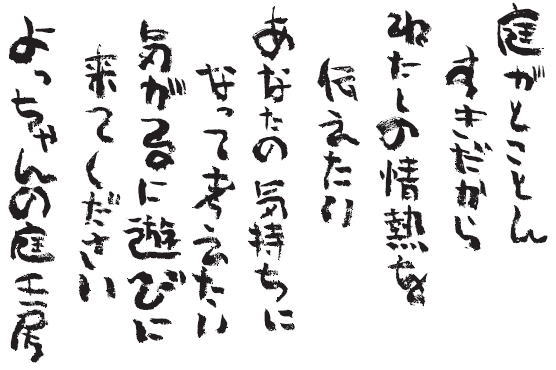 庭がとことん
すきだから
わたしの情熱を
伝えたい
あなたの気持ちに
なって考えたい
気がるに遊びに
来てください
よっちゃんの庭工房